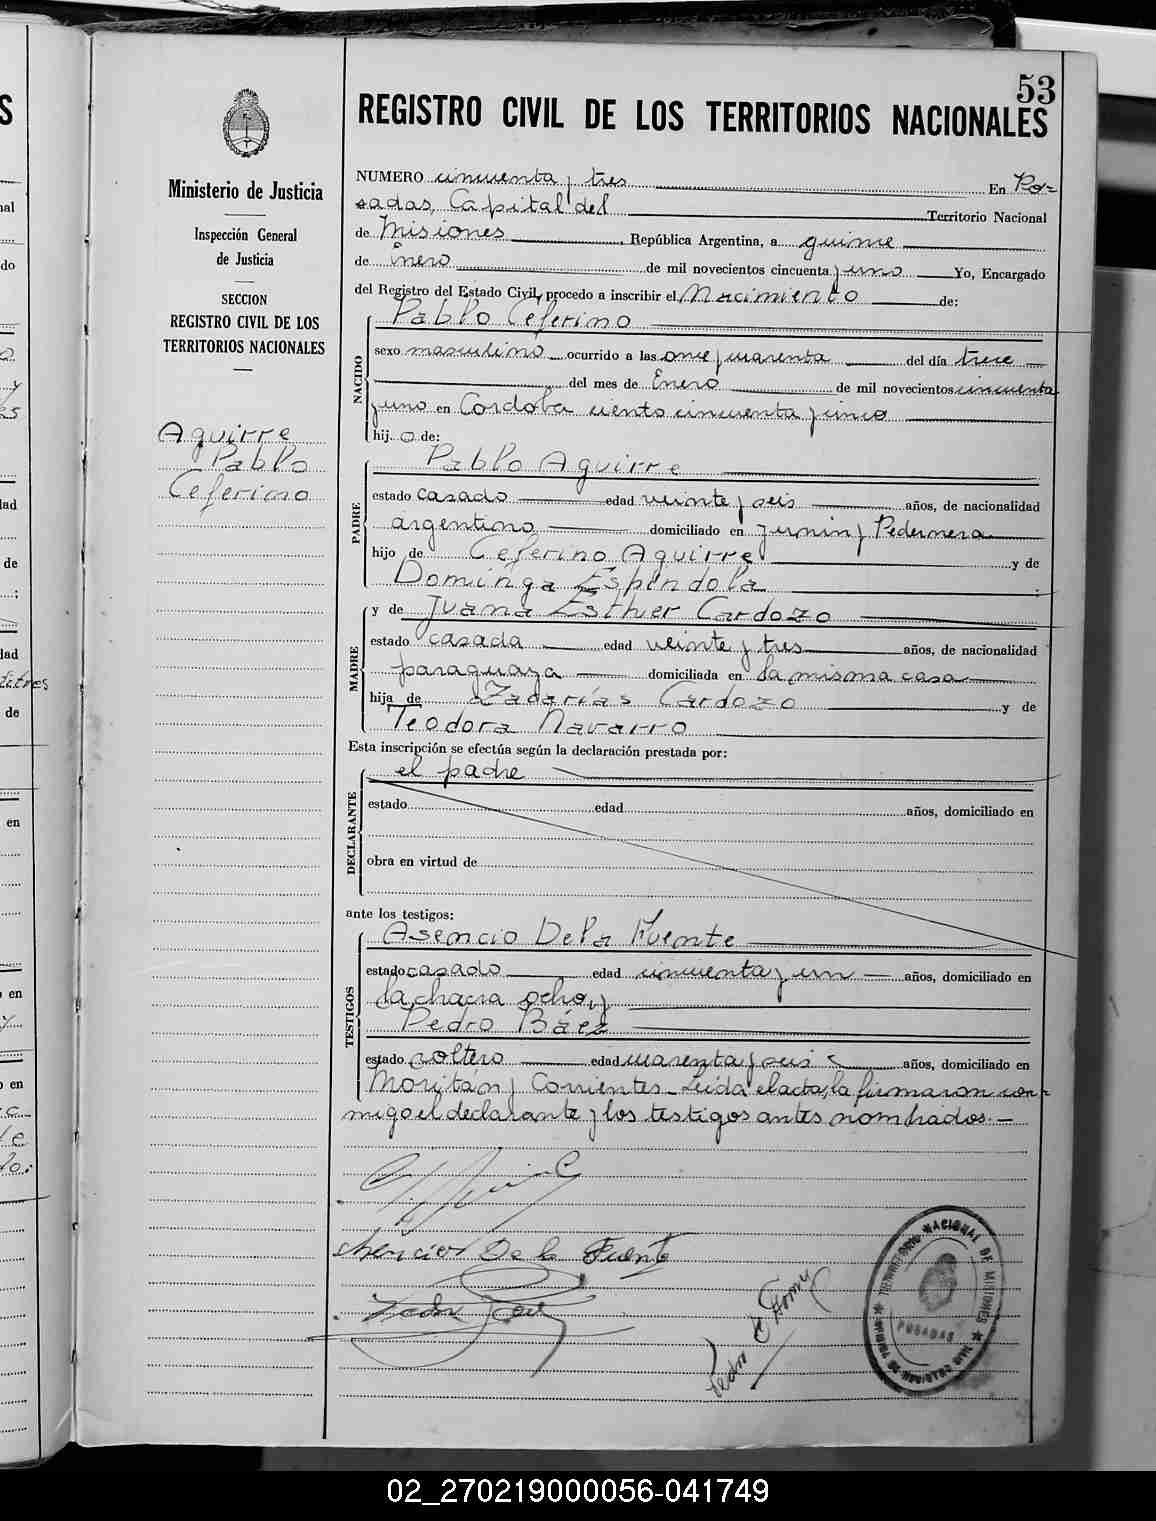 53
REGISTRO CIVIL DE LOS TERRITORIOS NACIONALES
Ministerio de Justicia
Inspección General
de Justicia
SECCION
REGISTRO CIVIL DE LOS
TERRITORIOS NACIONALES
Aguirre
Pablo
Ceferino
NUMERO cincuenta y tres En Po=
sadas, Capital del Territorio Nacional
de Misiones, República Argentina, a quince
de Enero de mil novecientos cincuenta y uno Yo, Encargado
del Registro del Estado Civil, procedo a inscribir el Nacimiento de:
NACIDO
Pablo Ceferino
sexo masculino ocurrido a las once y cuarenta del día trece
del mes de Enero de mil novecientos cincuenta
y uno en Cordoba ciento cincuenta y cinco
hij o de:
PADRE
Pablo Aguirre
estado casado edad veinte y seis años, de nacionalidad
argentino domiciliado en Junin y Pedernera
hijo de Ceferino Aguirre y de
Dominga Espíndola
MADRE
y de Juana Esther Cardozo
estado casada edad veinte y tres años, de nacionalidad
paraguaya domiciliada en la misma casa
hija de Zacarías Cardozo y de
Teodora Navarro
Esta inscripción se efectúa según la declaración prestada por:
DECLARANTE
el padre
estado edad años, domiciliado en
obra en virtud de
ante los testigos:
TESTIGOS
Asencio De la Fuente
estado casado edad cincuenta y un años, domiciliado en
la chacra ocho, y
Pedro Báez
estado soltero edad cuarenta y seis años, domiciliado en
Moritán y Corrientes. Leída el acta, la firmaron con=
migo el declarante y los testigos antes nombrados.—
Asencion De la Fuente
Pedro Baez
Pedro
TERRITORIO NACIONAL DE MISIONES
POSADAS